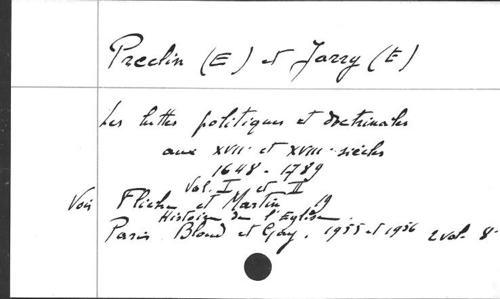 Preclin (E) et Jarry (E)
Les luttes politiques et doctrinales
aux XVIIe et XVIIIe siècles
1648-1789
Vol. I et II
Voir Fliche et Martin 19
Histoire de l'Eglise.
Paris Bloud et Gay. 1955 et 1956 2 vol. 8°